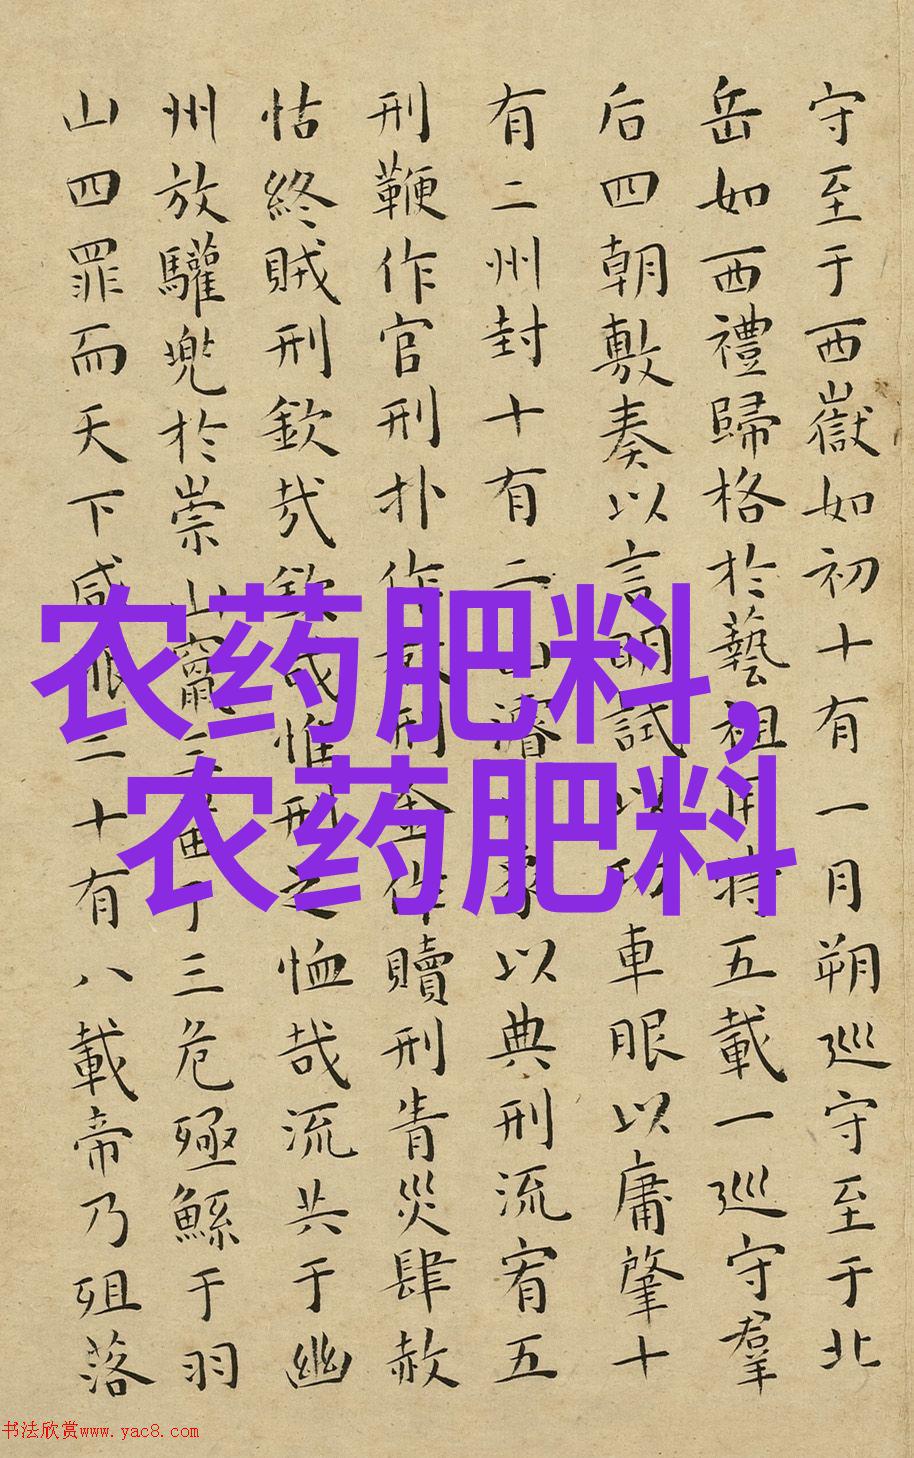 守至于西嶽如初十有一月朔巡守至于北
岳如西禮歸格於藝祖用特五載一巡守羣
后四朝敷奏以言明試以功車眼以庸肇十
有二州封十有二山濬象以典刑流宥五
刑鞭作官刑扑作教刑金作贖刑眚災肆赦
怙終賊刑欽哉欽哉惟刑之恤哉流共于幽
州放驩兜於崇山竄三苗于三危殛鯀于羽
山四罪而天下咸服二十有八載帝乃殂落
农药肥料,
农药肥料
书法欣赏www.yac8.com